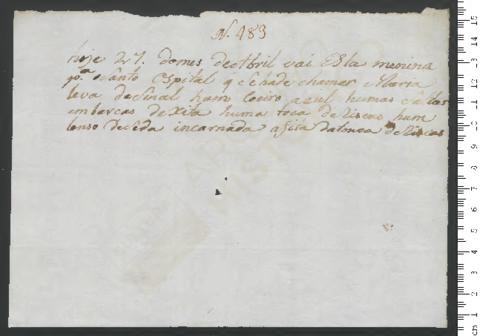 N. 483
hoje 27. domes de Abril vai esta menina
pª. o santo Ospital q̃ se hade chamar Maria
leva de Sinal hum Coeiro azul humas
em de Xita huma toca de Riscas hum
lenso de seda incarnada a fita da touca de Riscas